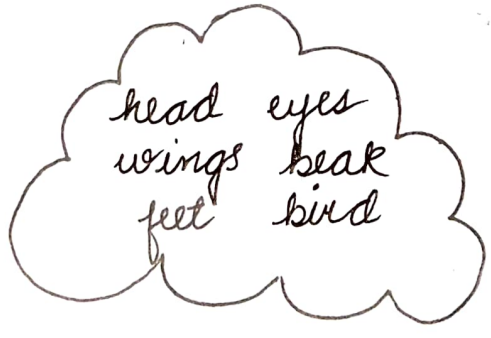 head eyes
wings beak
feet bird